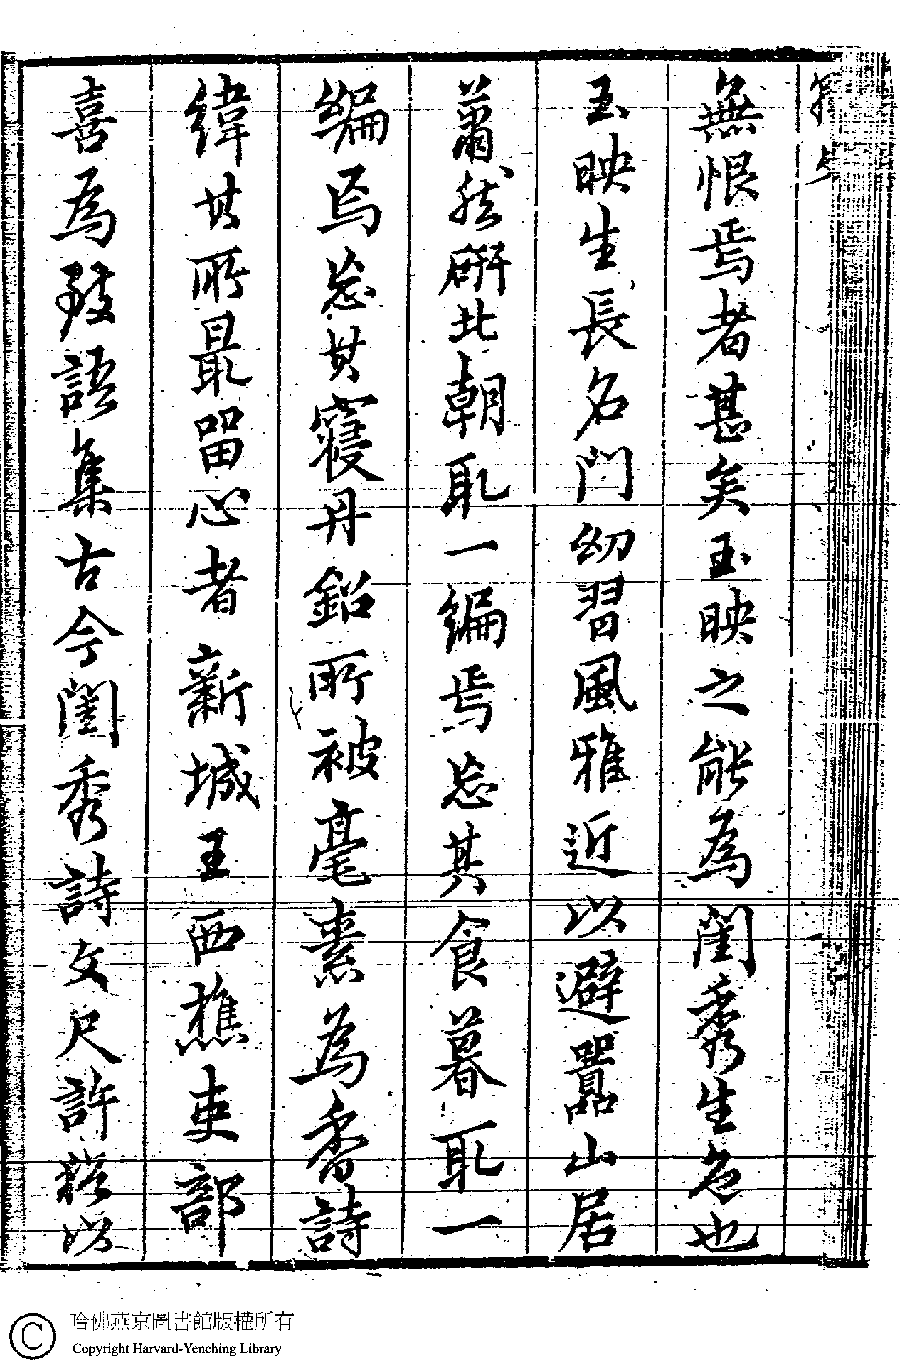 無恨焉者甚矣玉映之能為閨秀生色也
玉映生長名門幼習風雅近以避囂山居
蕭然研北朝取一編焉忘其食暮取一
編焉忘其寢丹鉛所被毫素為香詩
緯其所最留心者新城王西樵吏部
喜為緻語集古今閨秀詩文尺許稿以
哈佛燕京圖書館版權所有
Copyright Harvard-Yenching Library